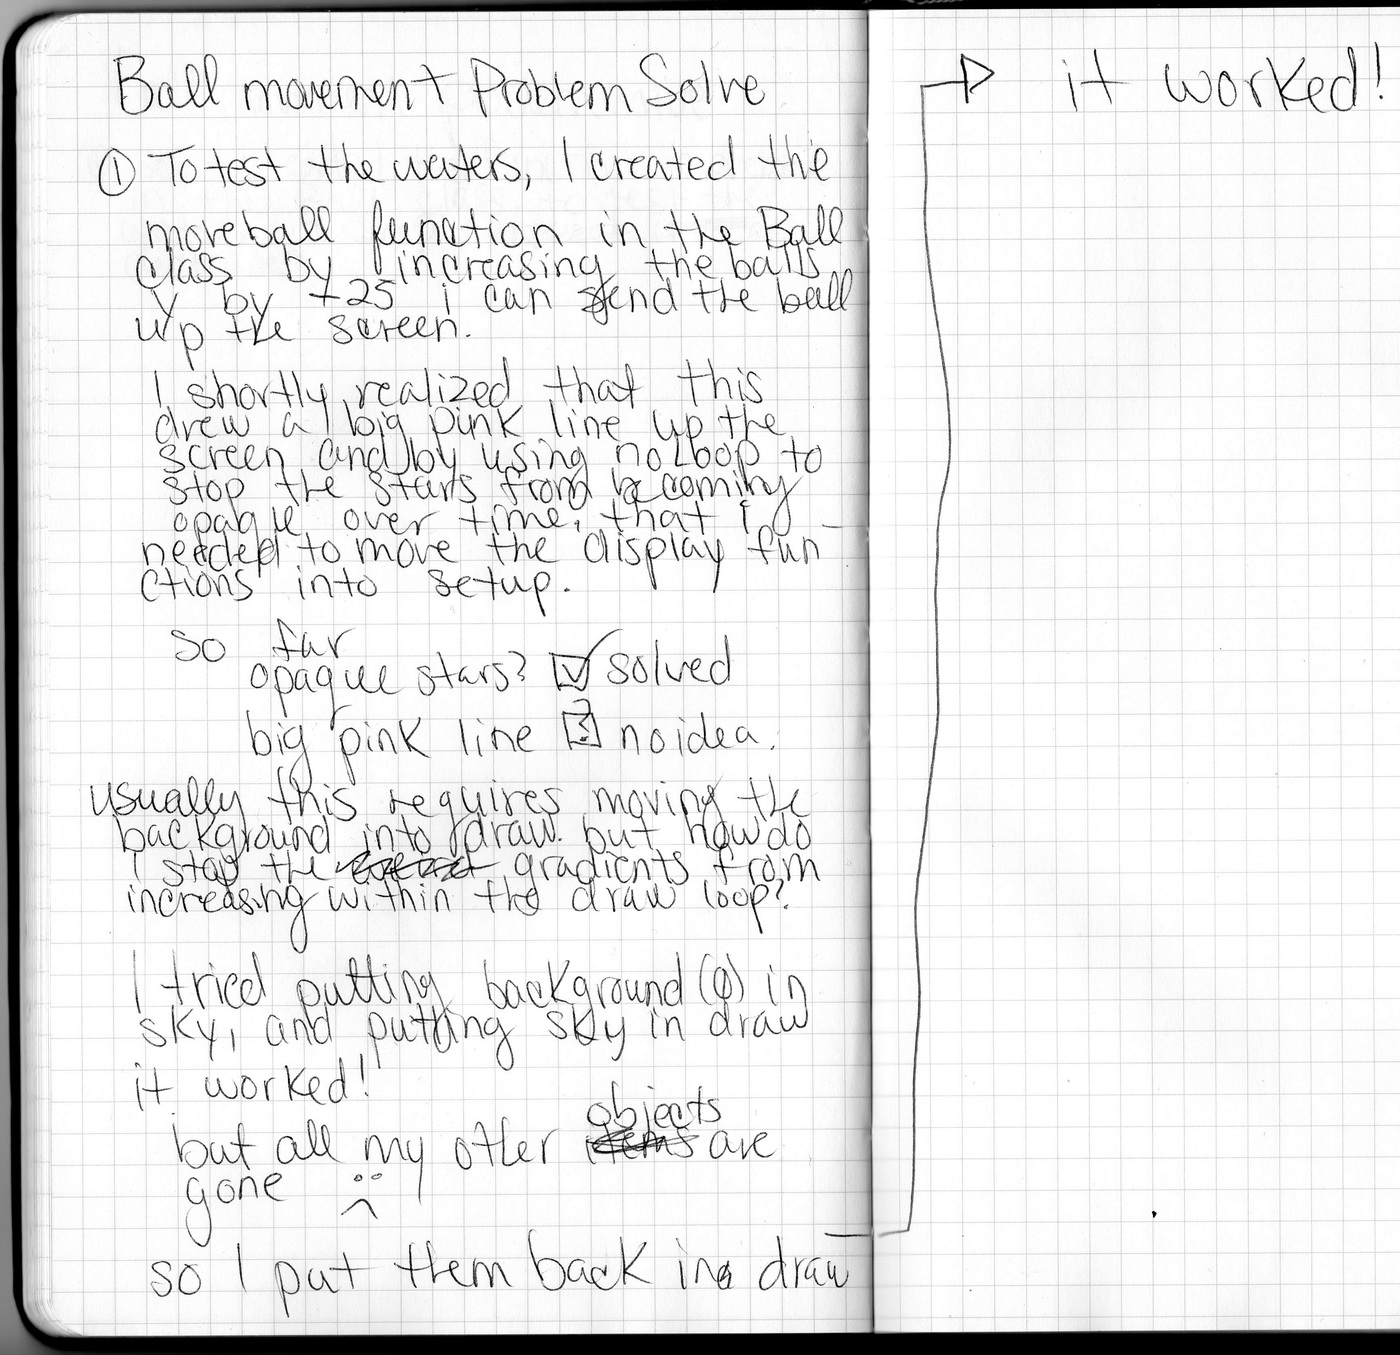 Ball movement Problem Solve
① To test the waters, I created the
moveball function in the Ball
class by increasing the balls
y by +25 i can send the ball
up the screen.
I shortly realized that this
drew a big pink line up the
screen and by using noLoop to
stop the stars from becoming
opaque over time, that i
needed to move the display fun-
ctions into setup.
so far
opaque stars? ☑ solved
big pink line ? no idea.
usually this requires moving the
background into draw. but how do
I stop the gradients from
increasing within the draw loop?
I tried putting background(0) in
sky, and putting sky in draw
it worked!
objects
but all my other items are
gone :(
so I put them back in draw
→ it worked!